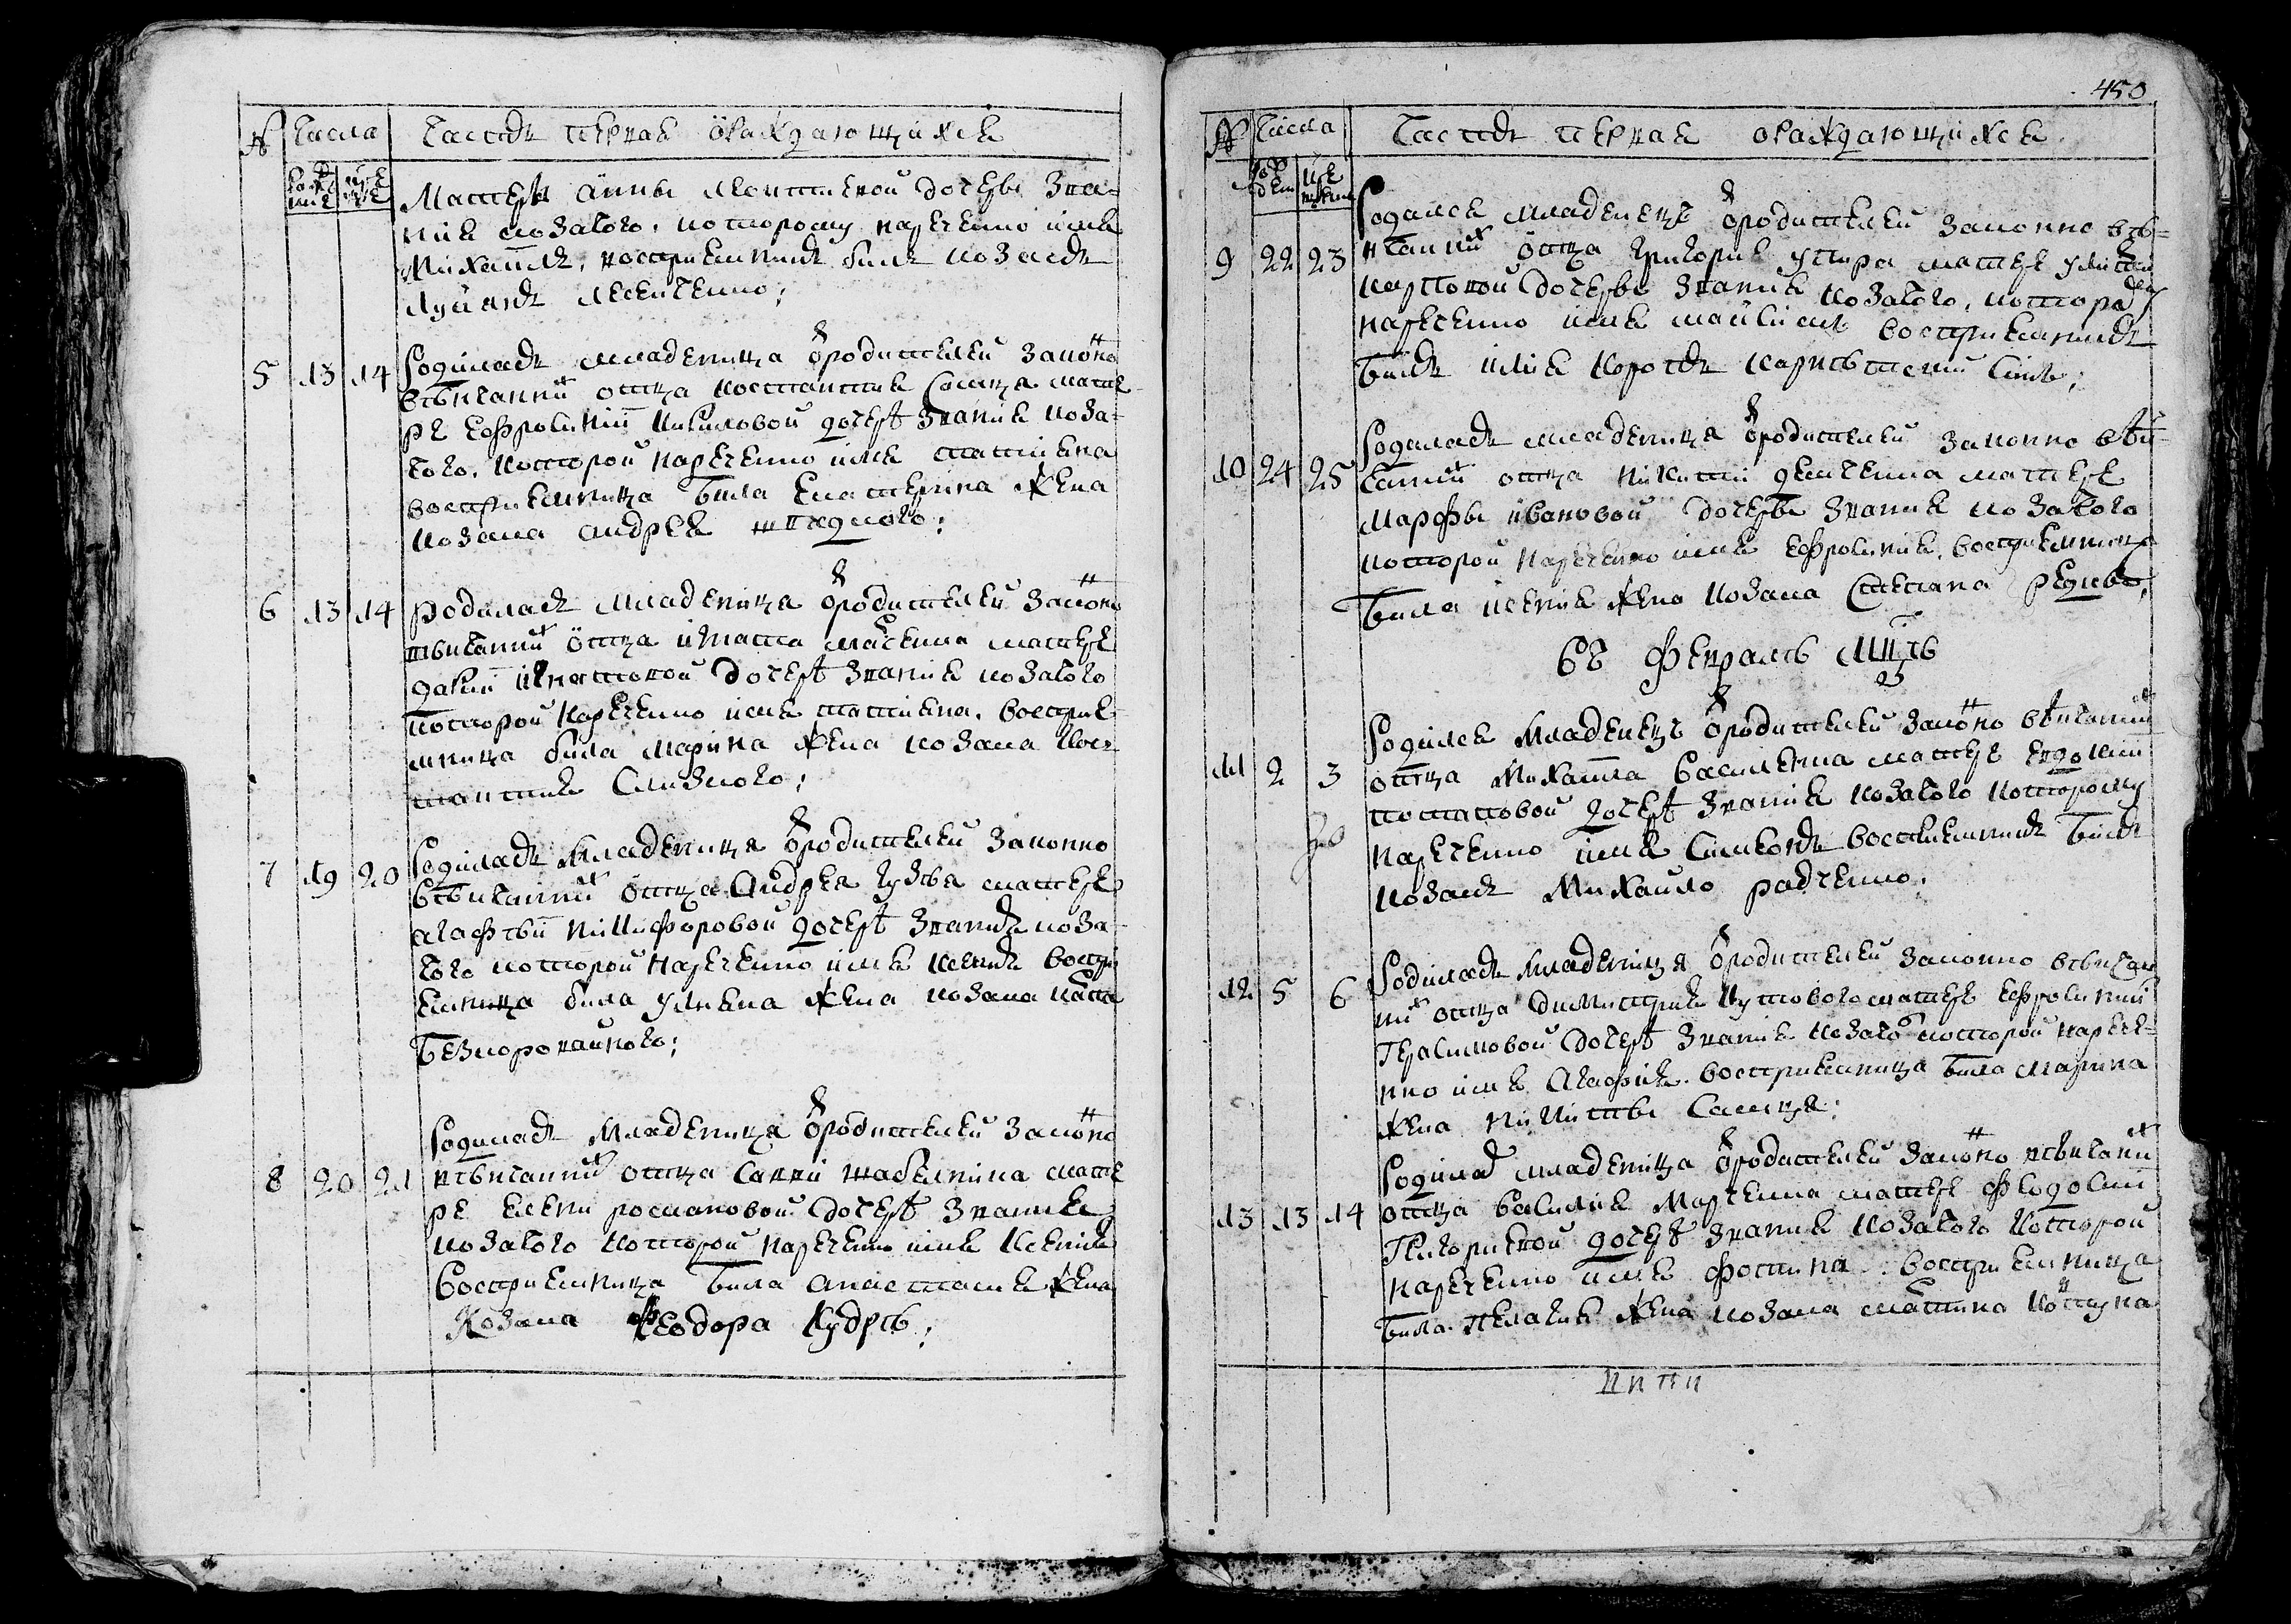 № числа часть первая ѡраждающихся
рождения крещения
Матери Анны Леонтиевой дочеры зва-
ния козачого, которому наречено имя
Михаилъ, восприемникъ билъ козакъ
Лукиянъ Лесенченко;
5 13 14 Родиласъ младеница ѿ родителей законно
вѣнчанних отца Костантия Самця мате-
ре Евфросинии Кириловой дочеры звания коза-
чого, которой наречено имя Татияна
восприемница била Екатерина жена
козака Андрея
6 13 14 родиласъ младеница ѿ родителей законно
вѣнчанних отца Игната матере
Дарии Игнатовой дочеры звания козачого
которой наречено имя Татияна, восприе-
мница била Марина жена козака Кос-
тантия Слизкого;
7 19 20 Родиласъ младеница ѿ родителей законно
вѣнчанних отца Андрея Гузѣя матере
Агафѣи Никифоровой дочеры звания коза-
чого которой наречено имя Ксения воспри
емница била Улияна жена козака
Безкоровайного;
8 20 21 Родиласъ младеница ѿ родителей законно
вѣнчанних отца Савви Шабелника мате
ре Ксении Романовой дочеры звания
козачого которой наречено имя Ксения
восприемница била Анастасия жена
Козака Феодора Кудрѣ;
450
№ числа часть первая ѡраждающихся
рождения крещения
9 22 23 Родился младенецъ ѿ родителей законно вѣ-
нчанних отца Григория матере Улити
Карповой дочеры звания козачого, котором
наречено имя Маѯимъ восприемникъ
билъ Илия Коротъ синъ;
10 24 25 Родиласъ младеница ѿ родителей законно вѣн-
чанних отца Никити Демченка матере
Марфы Ивановой дочеры звания козачого
которой наречено имя Евфросиния, восприемница
била Ксения жена козака Стефана Редки;
въ февралѣ мцѣ
11 2 3 Родился младенецъ ѿ родителей законно вѣнчанних
отца Михаила Василенка матере Евдокии
Потаповой дочеры звания козачого которому
наречено имя Симеонъ восприемникъ билъ
козакъ Михайло Радченко;
12 5 6 Родиласъ младеница ѿ родителей законно вѣнчан
них отца Димитрия Кутового матере Евфросинии
Герасимовой дочеры звания козачого которой нарече-
нно имя Агафия, восприемница била Марина
жена Никиты Самця;
13 13 14 Родилас младеница ѿ родителей законно вѣнчаних
отца Василия Марченка матере Феодосии
Григориевой дочеры звания козачого которой
наречено имя Фотина восприемница
била Пелагия жена козака